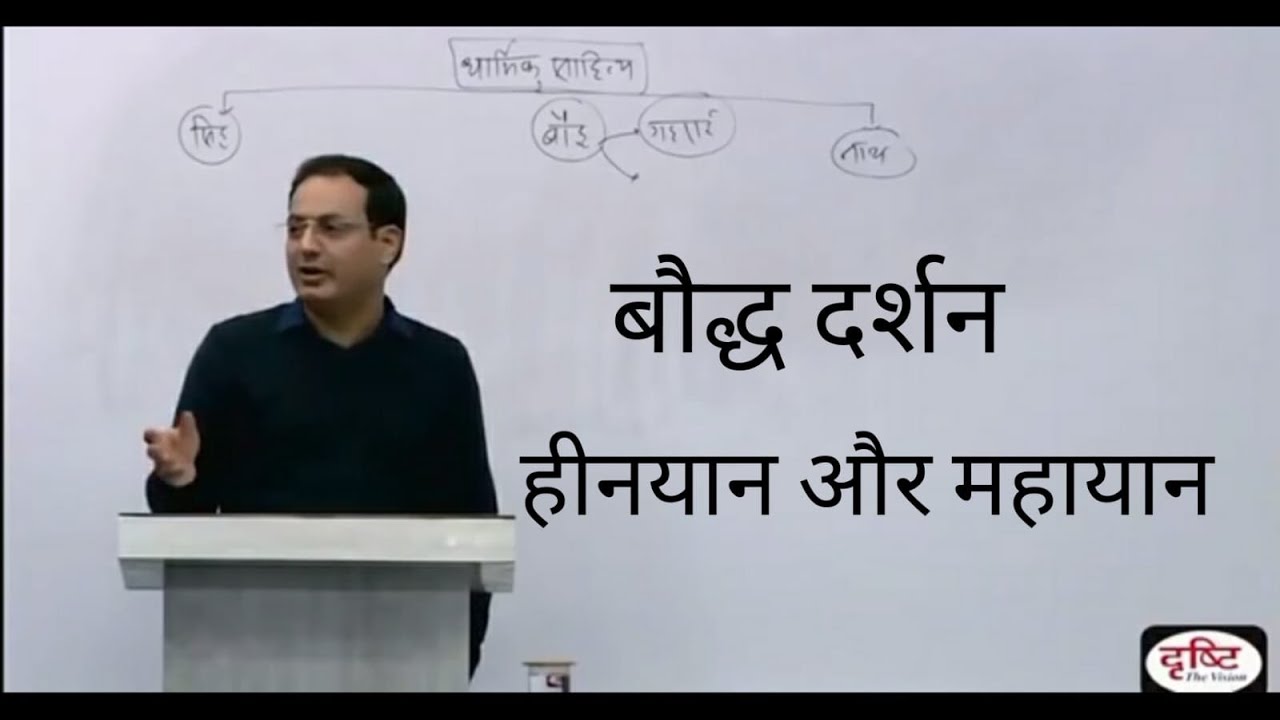 धार्मिक साहित्य
सिद्ध
बौद्ध
नाथ
बौद्ध दर्शन
हीनयान और महायान
दृष्टि
The Vision